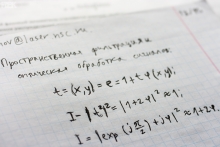 Пространственная фильтрация
оптическая обработка сигналов
t = (x,y) = e = 1 + t φ(x,y);
I = |t|² = |1 + 2φ|² ≈ 1;
I = |exp(j π/2) + jφ|² ≈ 1 + 2φ